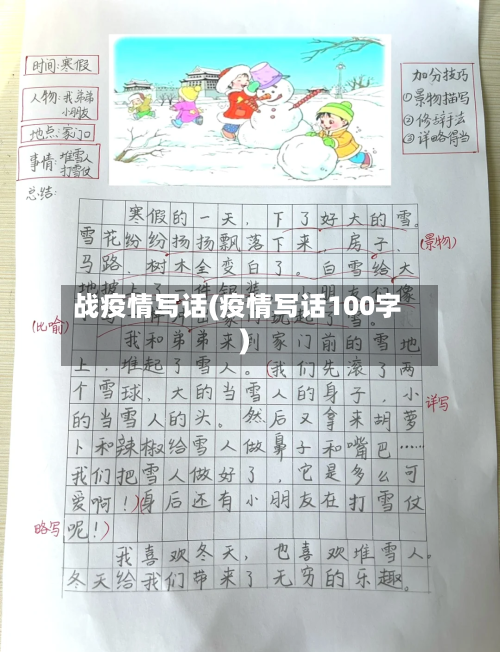 时间:寒假
人物:我弟弟
小朋友
地点:家门口
事情:堆雪人
打雪仗
加分技巧
①景物描写
②修辞手法
③详略得当
总结:
寒假的一天，下了好大的雪。
雪花纷纷扬扬飘落下来，房子、
(景物)
马路、树木全变白了。白雪给大
地披上了一件银装，
战疫情写话(疫情写话100字
)
(比喻)
我和弟弟来到家门前的雪地
上，堆起了雪人。(我们先滚了两
个雪球，大的当雪人的身子，小
详写
的当雪人的头。然后又拿来胡萝
卜和辣椒给雪人做鼻子和嘴巴……
我们把雪人做好了，它是多么可
爱啊！)(身后还有小朋友在打雪仗
略写
呢！)
我喜欢冬天，也喜欢堆雪人。
冬天给我们带来了无穷的乐趣。